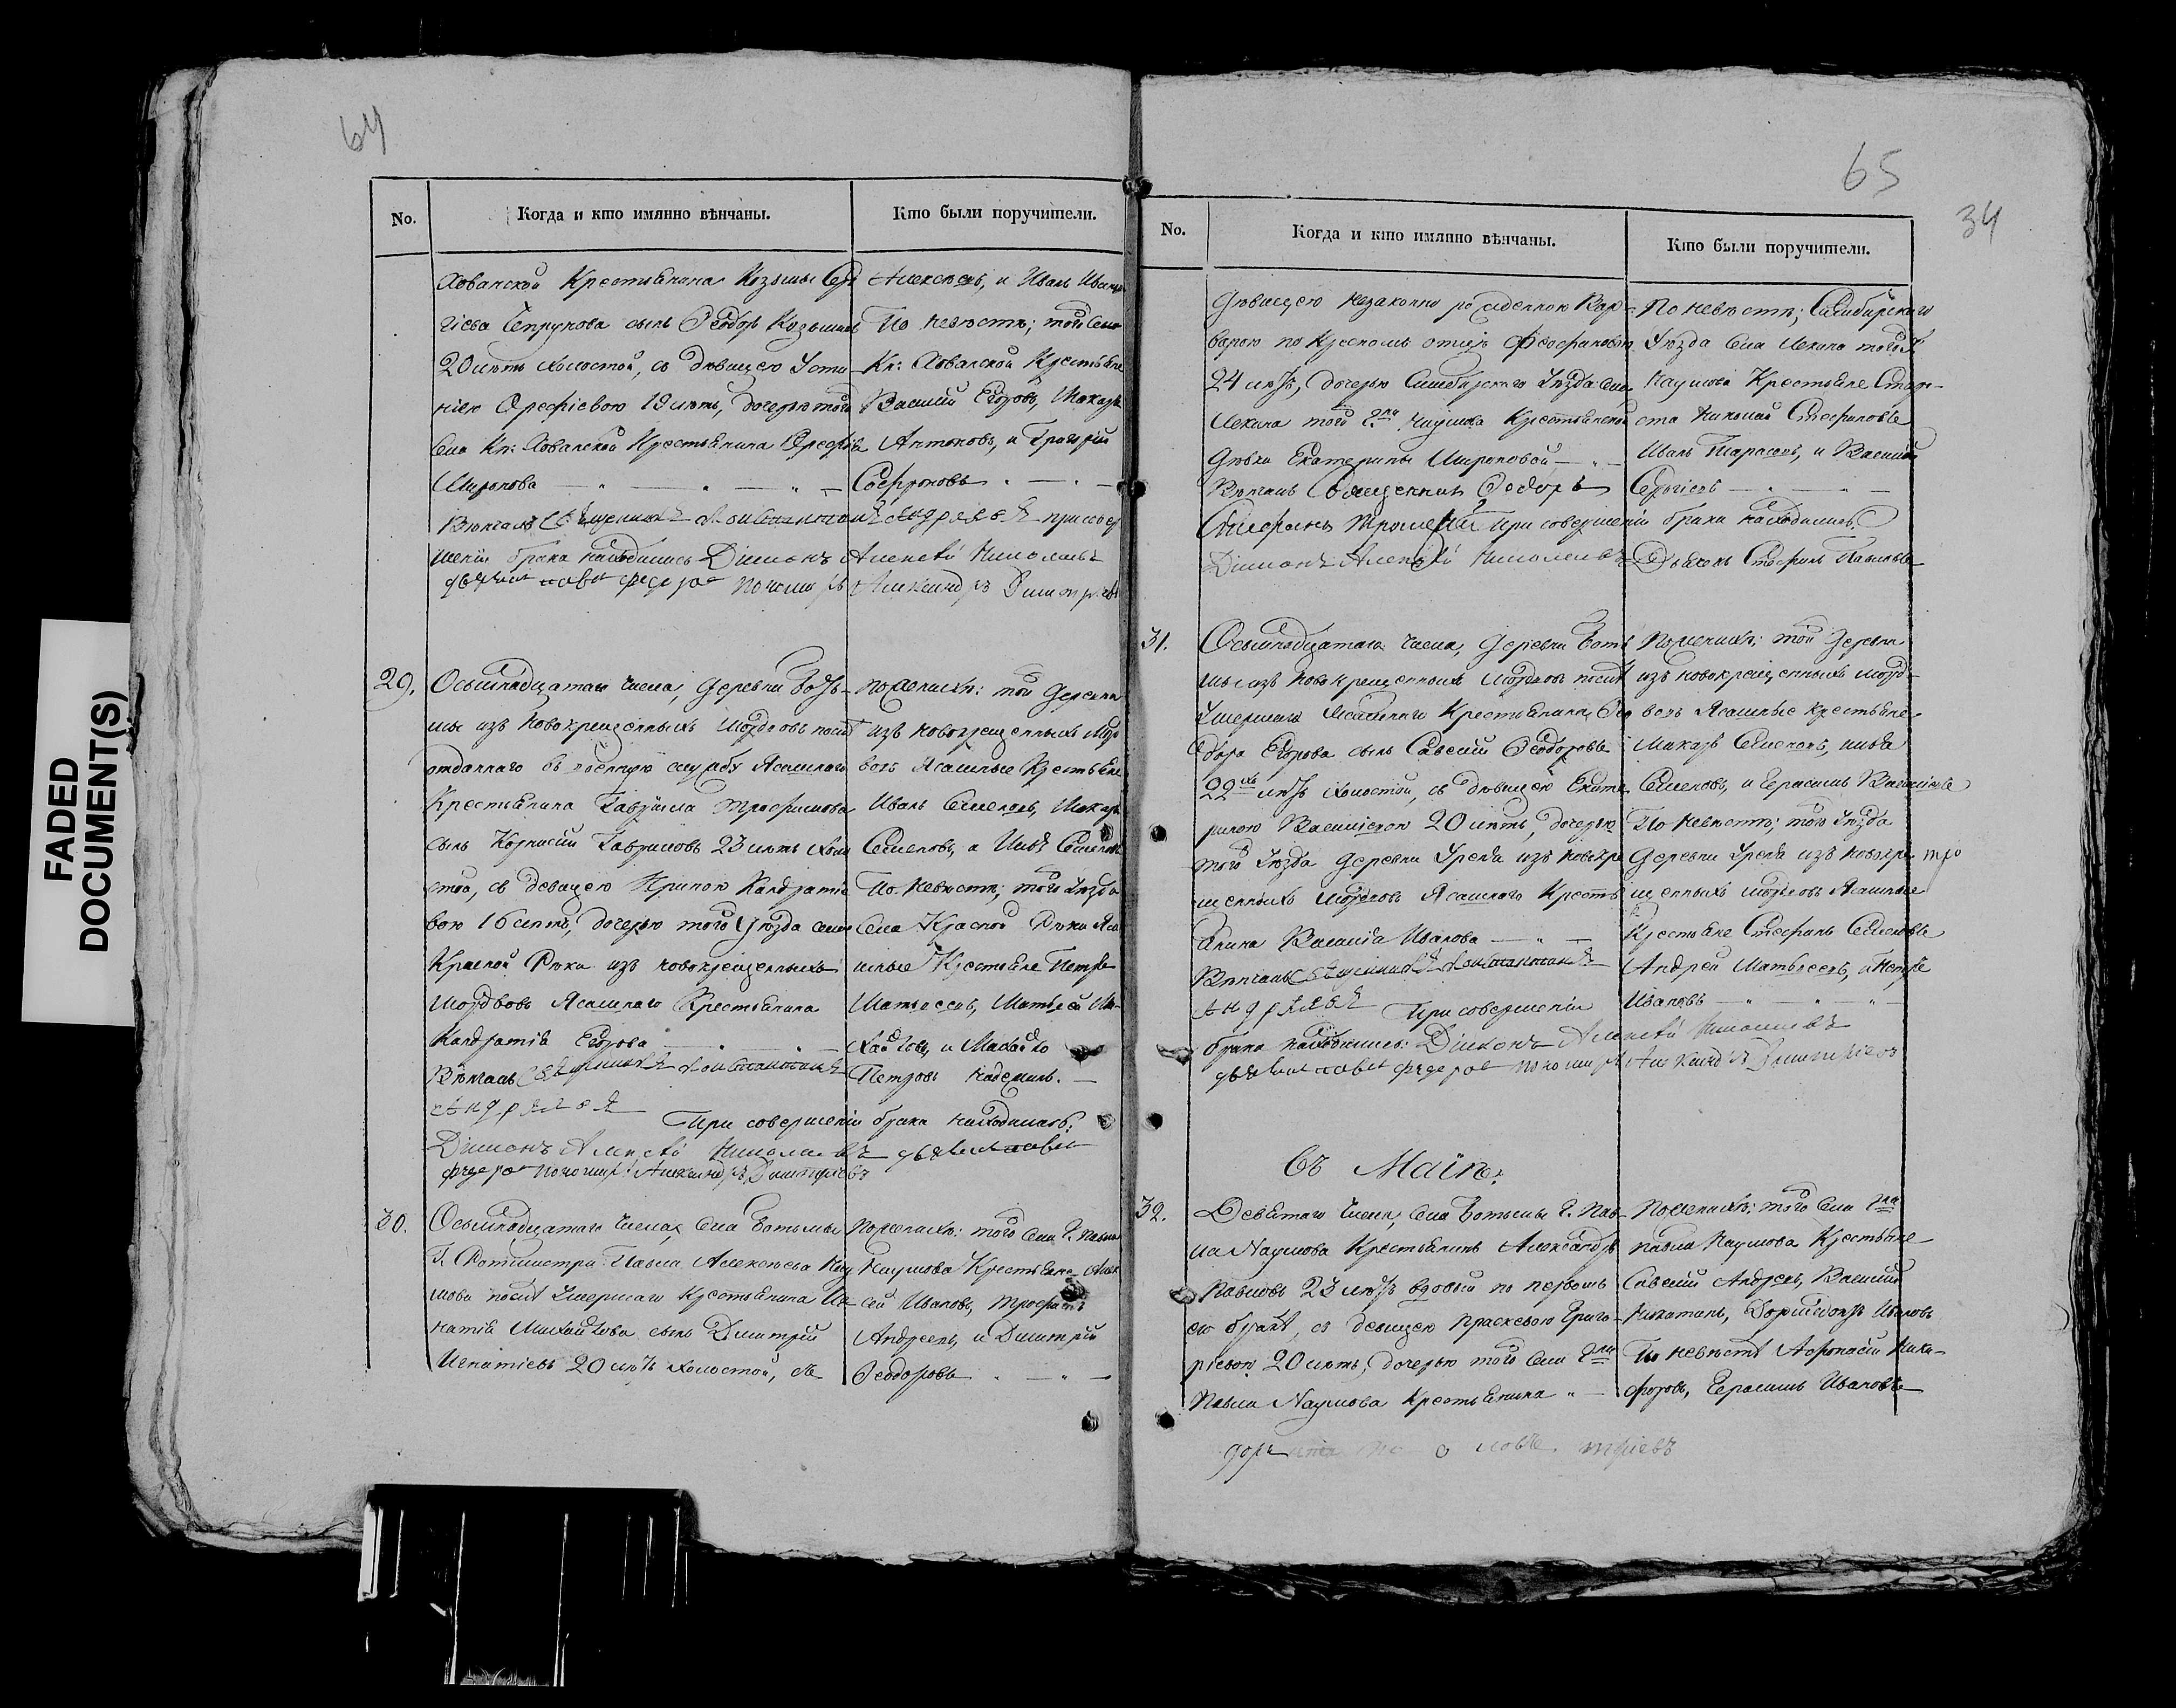 FADED
DOCUMENT(S)
64
No.
Когда и кто имянно вѣнчаны.
Кто были поручители.
Хованской Крестьянина Козьмы Сер
гіева Чепрунова сынъ Ѳеодоръ Козьминъ
20 лѣтъ холостой, съ дѣвицею Усти
ніею Орефіевою 19 лѣтъ, дочерью того
села Кн: Хованской Крестьянина Орефія
Миронова
Вѣнчалъ Священникъ Константинъ Андреевъ при совер
шеніи брака находились Діаконъ Алексѣй Николаевъ
дьячекъ Павел Федоров пономарь Александръ Димитріевъ
Алексѣевъ, и Иванъ Ивановъ
По невѣстѣ; того села
Кн: Хованской Крестьяне
Василій Егоровъ, Макаръ
Антоновъ, и Григорій
Софроновъ
29.
Осьмнадцатаго числа, деревни Боть-
мы изъ новокрещенныхъ мордовъ послѣ
отданнаго въ военную службу Ясашнаго
Крестьянина Гавріила Трофимова
сынъ Корнилій Гавриловъ 23 лѣтъ холо
стой, съ девицею Ириною Кандратіе
вою 16 лѣтъ, дочерью того Уѣзда села
Красной Рѣки изъ новокрещенныхъ
мордвовъ Ясашнаго Крестьянина
Кандратія Егорова
Вѣнчалъ Священникъ Константинъ
Андреевъ При совершеніи брака находились:
Діаконъ Алексѣй Николаевъ дьячекъ Павел
Федоров пономарь Александръ Димитріевъ
По женихѣ: той деревни
изъ новокрещенныхъ морд
вовъ Ясашные Крестьяне
Иванъ Семеновъ, Макаръ
Семеновъ, и Илья Семеновъ
По невѣстѣ; того Уѣзда
села Красной Рѣки Яса
шные Крестьяне Петръ
Матвеевъ, Матвей Ми-
хайловъ, и Михайло
Петровъ
30.
Осьмнадцатаго числа, села Ботьмы
Г. Ротмистра Павла Алексѣева Нау
мова послѣ Умершаго Крестьянина Иг
натія Михайлова сынъ Димитрій
Игнатіевъ 20 лѣтъ холостой, съ
По женихѣ: того села Г. Павла
Наумова Крестьяне Алек
сей Ивановъ, Трофимъ
Андреевъ, и Димитрій
Ѳеодоровъ
65
34
No.
Когда и кто имянно вѣнчаны.
Кто были поручители.
дѣвицею незаконно рожденною Вар-
варою по крестномъ отцѣ Феофановою
24 лѣтъ, дочерью Симбирскаго Уѣзда села
того Г-на Наумова Крестьянской
дѣвки Екатерины Мироновой
Вѣнчалъ Священникъ Ѳеодоръ
При совершеніи брака находились:
Діаконъ Алексѣй Николаевъ Дьяконъ Стефанъ Павловъ
По невѣстѣ; Симбирскаго
Уѣзда села того Г.
Наумова Крестьяне Старо-
ста Николай Стефановъ
Иванъ Тарасовъ, и Василій
Сергіевъ
31.
Осьмнадцатаго числа, деревни Боть
мы изъ новокрещенныхъ мордовъ послѣ
Умершаго Ясашнаго Крестьянина Ѳео
дора Егорова сынъ Савелій Ѳеодоровъ
22хъ лѣтъ холостой, съ дѣвицею Екате
риною Василіевою 20 лѣтъ, дочерью
того Уѣзда деревни Уреня изъ новокре
щенныхъ мордвовъ Ясашнаго Кресть
янина Василія Иванова
Вѣнчалъ Священникъ Константинъ
Андреевъ При совершеніи
брака находились: Діаконъ Алексѣй Николаевъ
дьячекъ Павел Федоров пономарь Александръ Димитріевъ
По женихѣ: той деревни
изъ новокрещенныхъ морд-
вовъ Ясашные крестьяне
Макаръ Семеновъ, Илья
Семеновъ, и Герасимъ Василіевъ
По невѣстѣ; того Уѣзда
деревни Уреня изъ новокре
щенныхъ мордвовъ Ясашные
Крестьяне Стефанъ Семеновъ
Андрей Матвѣевъ, и Петръ
Ивановъ
тро
Въ Маіѣ:
32.
Девятаго числа, села Ботьмы Г. Пав-
ла Наумова Крестьянинъ Александръ
Павловъ 23 лѣтъ вдовый по первомъ
его бракѣ, съ девицею Праскевою Григо-
ріевою 20 лѣтъ, дочерью того села Г-на
Павла Наумова Крестьянина
По женихѣ: того села Г-на
Павла Наумова Крестьяне
Савелій Андреевъ, Василій
Ивановъ
По невѣстѣ Афонасій Ники-
форовъ, Герасимъ Ивановъ